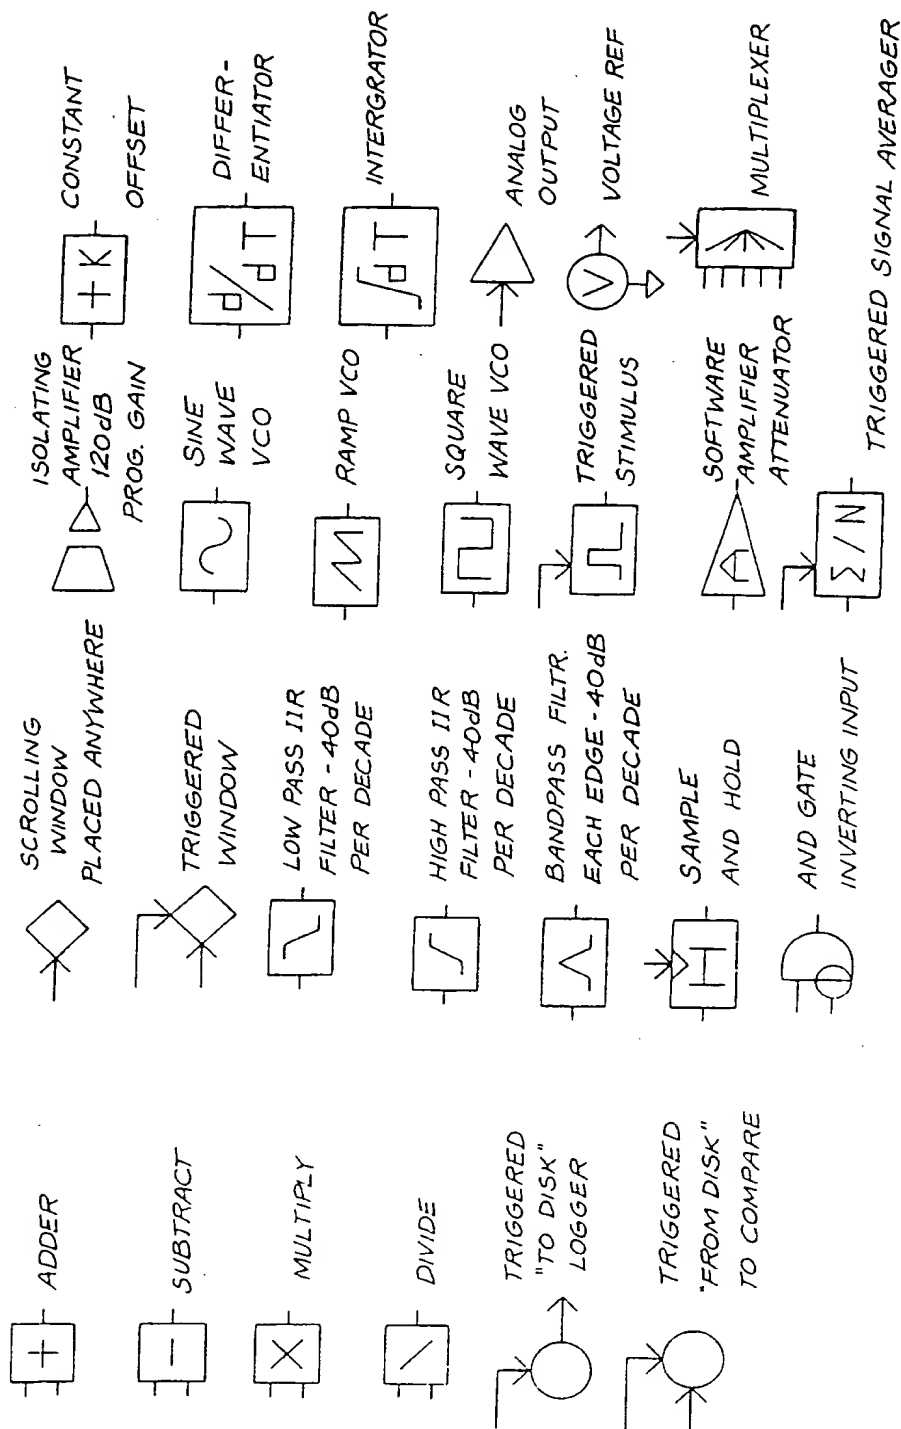 + ADDER
− SUBTRACT
× MULTIPLY
/ DIVIDE
TRIGGERED
"TO DISK"
LOGGER
TRIGGERED
"FROM DISK"
TO COMPARE
SCROLLING
WINDOW
PLACED ANYWHERE
TRIGGERED
WINDOW
LOW PASS IIR
FILTER - 40dB
PER DECADE
HIGH PASS IIR
FILTER - 40dB
PER DECADE
BANDPASS FILTR.
EACH EDGE - 40dB
PER DECADE
SAMPLE
AND HOLD
AND GATE
INVERTING INPUT
ISOLATING
AMPLIFIER
120dB
PROG. GAIN
SINE
WAVE
VCO
RAMP VCO
SQUARE
WAVE VCO
TRIGGERED
STIMULUS
SOFTWARE
AMPLIFIER
ATTENUATOR
Σ/N
TRIGGERED SIGNAL AVERAGER
+K
CONSTANT
OFFSET
d/dT
DIFFER-
ENTIATOR
∫dT
INTERGRATOR
ANALOG
OUTPUT
V
VOLTAGE REF
MULTIPLEXER